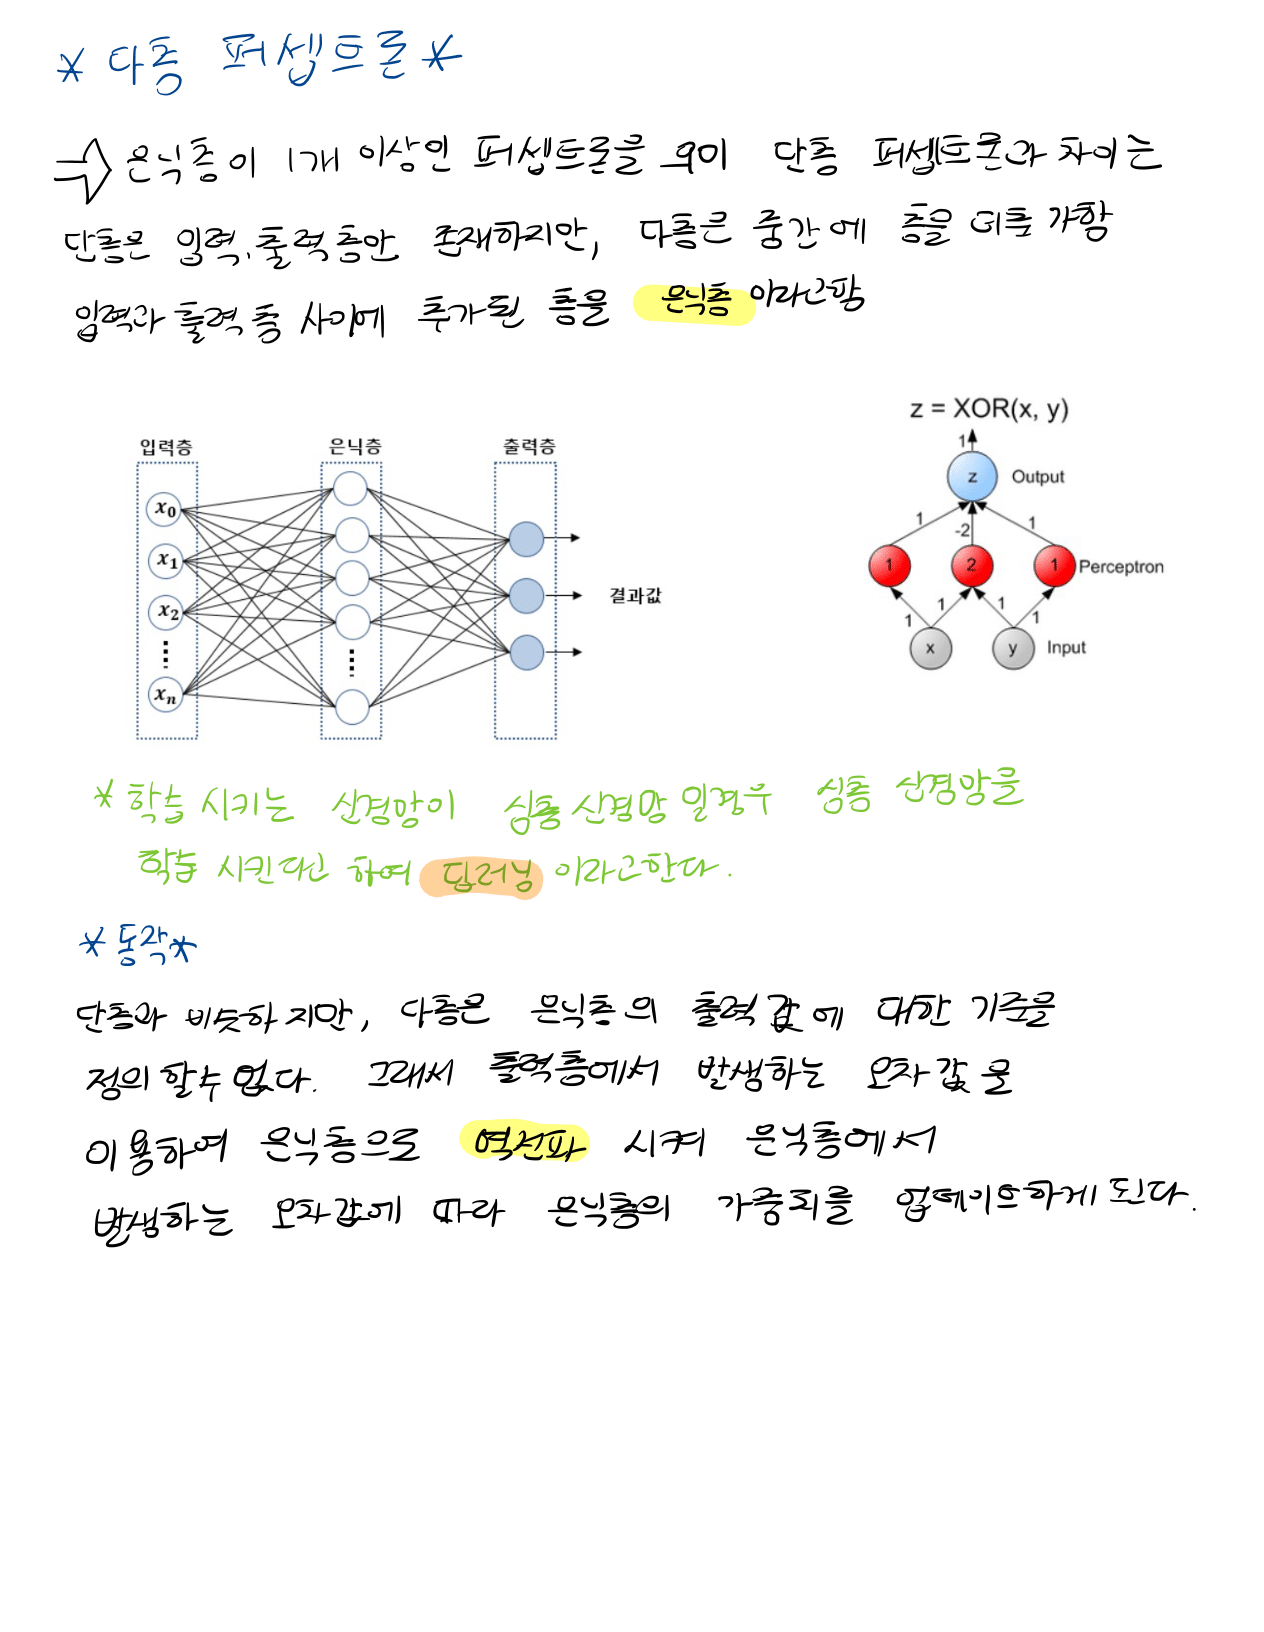 * 다층 퍼셉트론 *
⇒ 은닉층이 1개 이상인 퍼셉트론을 의미 단층 퍼셉트론과 차이는
단층은 입력, 출력 층만 존재하지만, 다층은 중간에 층을 더 추가함
입력과 출력 층 사이에 추가된 층을 은닉층 이라고함
입력층 은닉층 출력층
x₀
x₁
x₂
xₙ
결과값
z = XOR(x, y)
1
z Output
1 -2 1
1 2 1 Perceptron
1 1 1 1
x y Input
* 학습 시키는 신경망이 심층 신경망 일경우 심층 신경망을
학습 시킨다고 하여 딥러닝 이라고한다.
* 동작 *
단층과 비슷하지만, 다층은 은닉층의 출력값에 대한 기준을
정의 할수 없다. 그래서 출력층에서 발생하는 오차 값 을
이용하여 은닉층으로 역전파 시켜 은닉층에서
발생하는 오차값에 따라 은닉층의 가중치를 업데이트하게 된다.